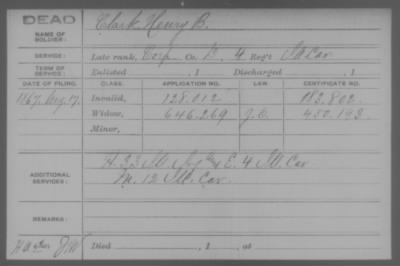 DEAD
NAME OF SOLDIER: Clark, Henry B.
SERVICE: Late rank, Corp Co. 4 Reg't Cav
TERM OF SERVICE: Enlisted , 1 Discharged , 1
DATE OF FILING. CLASS. APPLICATION NO. LAW. CERTIFICATE NO.
1867, Aug. 17. Invalid, 128.012 82.802
Widow, 646.269 450.193
Minor,
ADDITIONAL SERVICES: E. 4 Cav
M. 12 Cav.
REMARKS:
Died , 1 , at